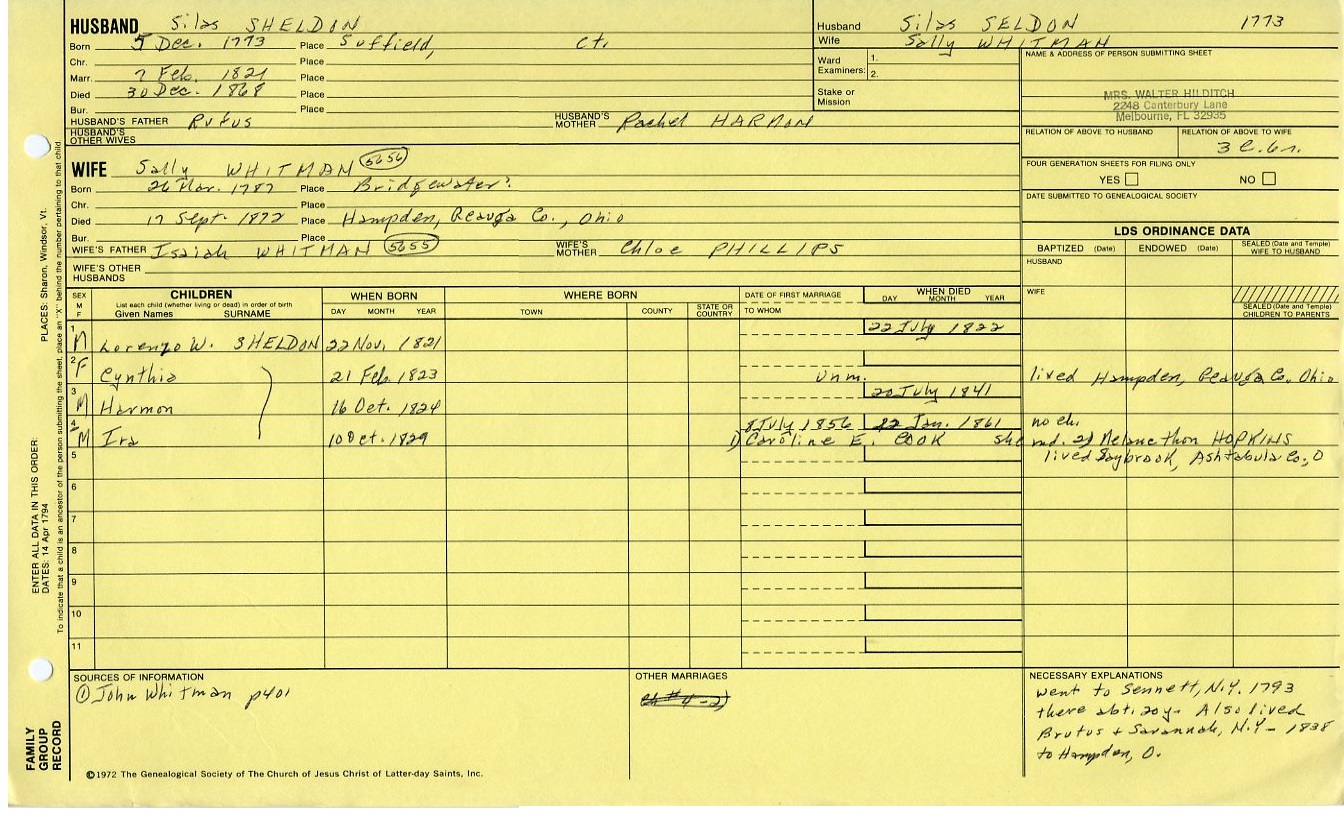 HUSBAND Silas SHELDON
Born 5 Dec. 1773 Place Suffield, Ct.
Chr. Place
Marr. 7 Feb. 1821 Place
Died 30 Dec. 1868 Place
Bur. Place
HUSBAND'S FATHER Rufus HUSBAND'S MOTHER Rachel HARMON
HUSBAND'S OTHER WIVES
Husband Silas SELDON 1773
Wife Sally WHITMAN
Ward Examiners: 1.
2.
Stake or Mission
NAME & ADDRESS OF PERSON SUBMITTING SHEET
MRS. WALTER HILDITCH
2248 Canterbury Lane
Melbourne, FL 32935
RELATION OF ABOVE TO HUSBAND RELATION OF ABOVE TO WIFE
3 C. 6r.
FOUR GENERATION SHEETS FOR FILING ONLY
YES NO
DATE SUBMITTED TO GENEALOGICAL SOCIETY
WIFE Sally WHITMAN 5656
Born 26 Mar. 1787 Place Bridgewater?
Chr. Place
Died 17 Sept. 1872 Place Hampden, Geauga Co., Ohio
Bur. Place
WIFE'S FATHER Isaiah WHITMAN 5655 WIFE'S MOTHER Chloe PHILLIPS
WIFE'S OTHER HUSBANDS
LDS ORDINANCE DATA
BAPTIZED (Date) ENDOWED (Date) SEALED (Date and Temple) WIFE TO HUSBAND
HUSBAND
WIFE
SEALED (Date and Temple) CHILDREN TO PARENTS
SEX M F
CHILDREN
List each child (whether living or dead) in order of birth
Given Names SURNAME
WHEN BORN
DAY MONTH YEAR
WHERE BORN
TOWN COUNTY STATE OR COUNTRY
DATE OF FIRST MARRIAGE
TO WHOM
WHEN DIED
DAY MONTH YEAR
1 M Lorenzo W. SHELDON 22 Nov. 1821 22 July 1822
2 F Cynthia 21 Feb. 1823 unm. lived Hampden, Geauga Co., Ohio
3 M Harmon 16 Oct. 1824 20 July 1841
4 M Ira 10 Oct. 1829 8 July 1856 22 Jan. 1861 no ch.
1) Caroline E. COOK she md. 2) Melancthon HOPKINS
5 lived Saybrook, Ashtabula Co., O
6
7
8
9
10
11
SOURCES OF INFORMATION
① John Whitman p401
OTHER MARRIAGES
ch #4-2)
NECESSARY EXPLANATIONS
went to Sennett, N.Y. 1793
there abt. 20 y- Also lived
Brutus + Savannah, N.Y - 1838
to Hampden, O.
©1972 The Genealogical Society of The Church of Jesus Christ of Latter-day Saints, Inc.
FAMILY GROUP RECORD
ENTER ALL DATA IN THIS ORDER:
DATES: 14 Apr 1794
PLACES: Sharon, Windsor, Vt.
To indicate that a child is an ancestor of the person submitting the sheet, place an "X" behind the number pertaining to that child.